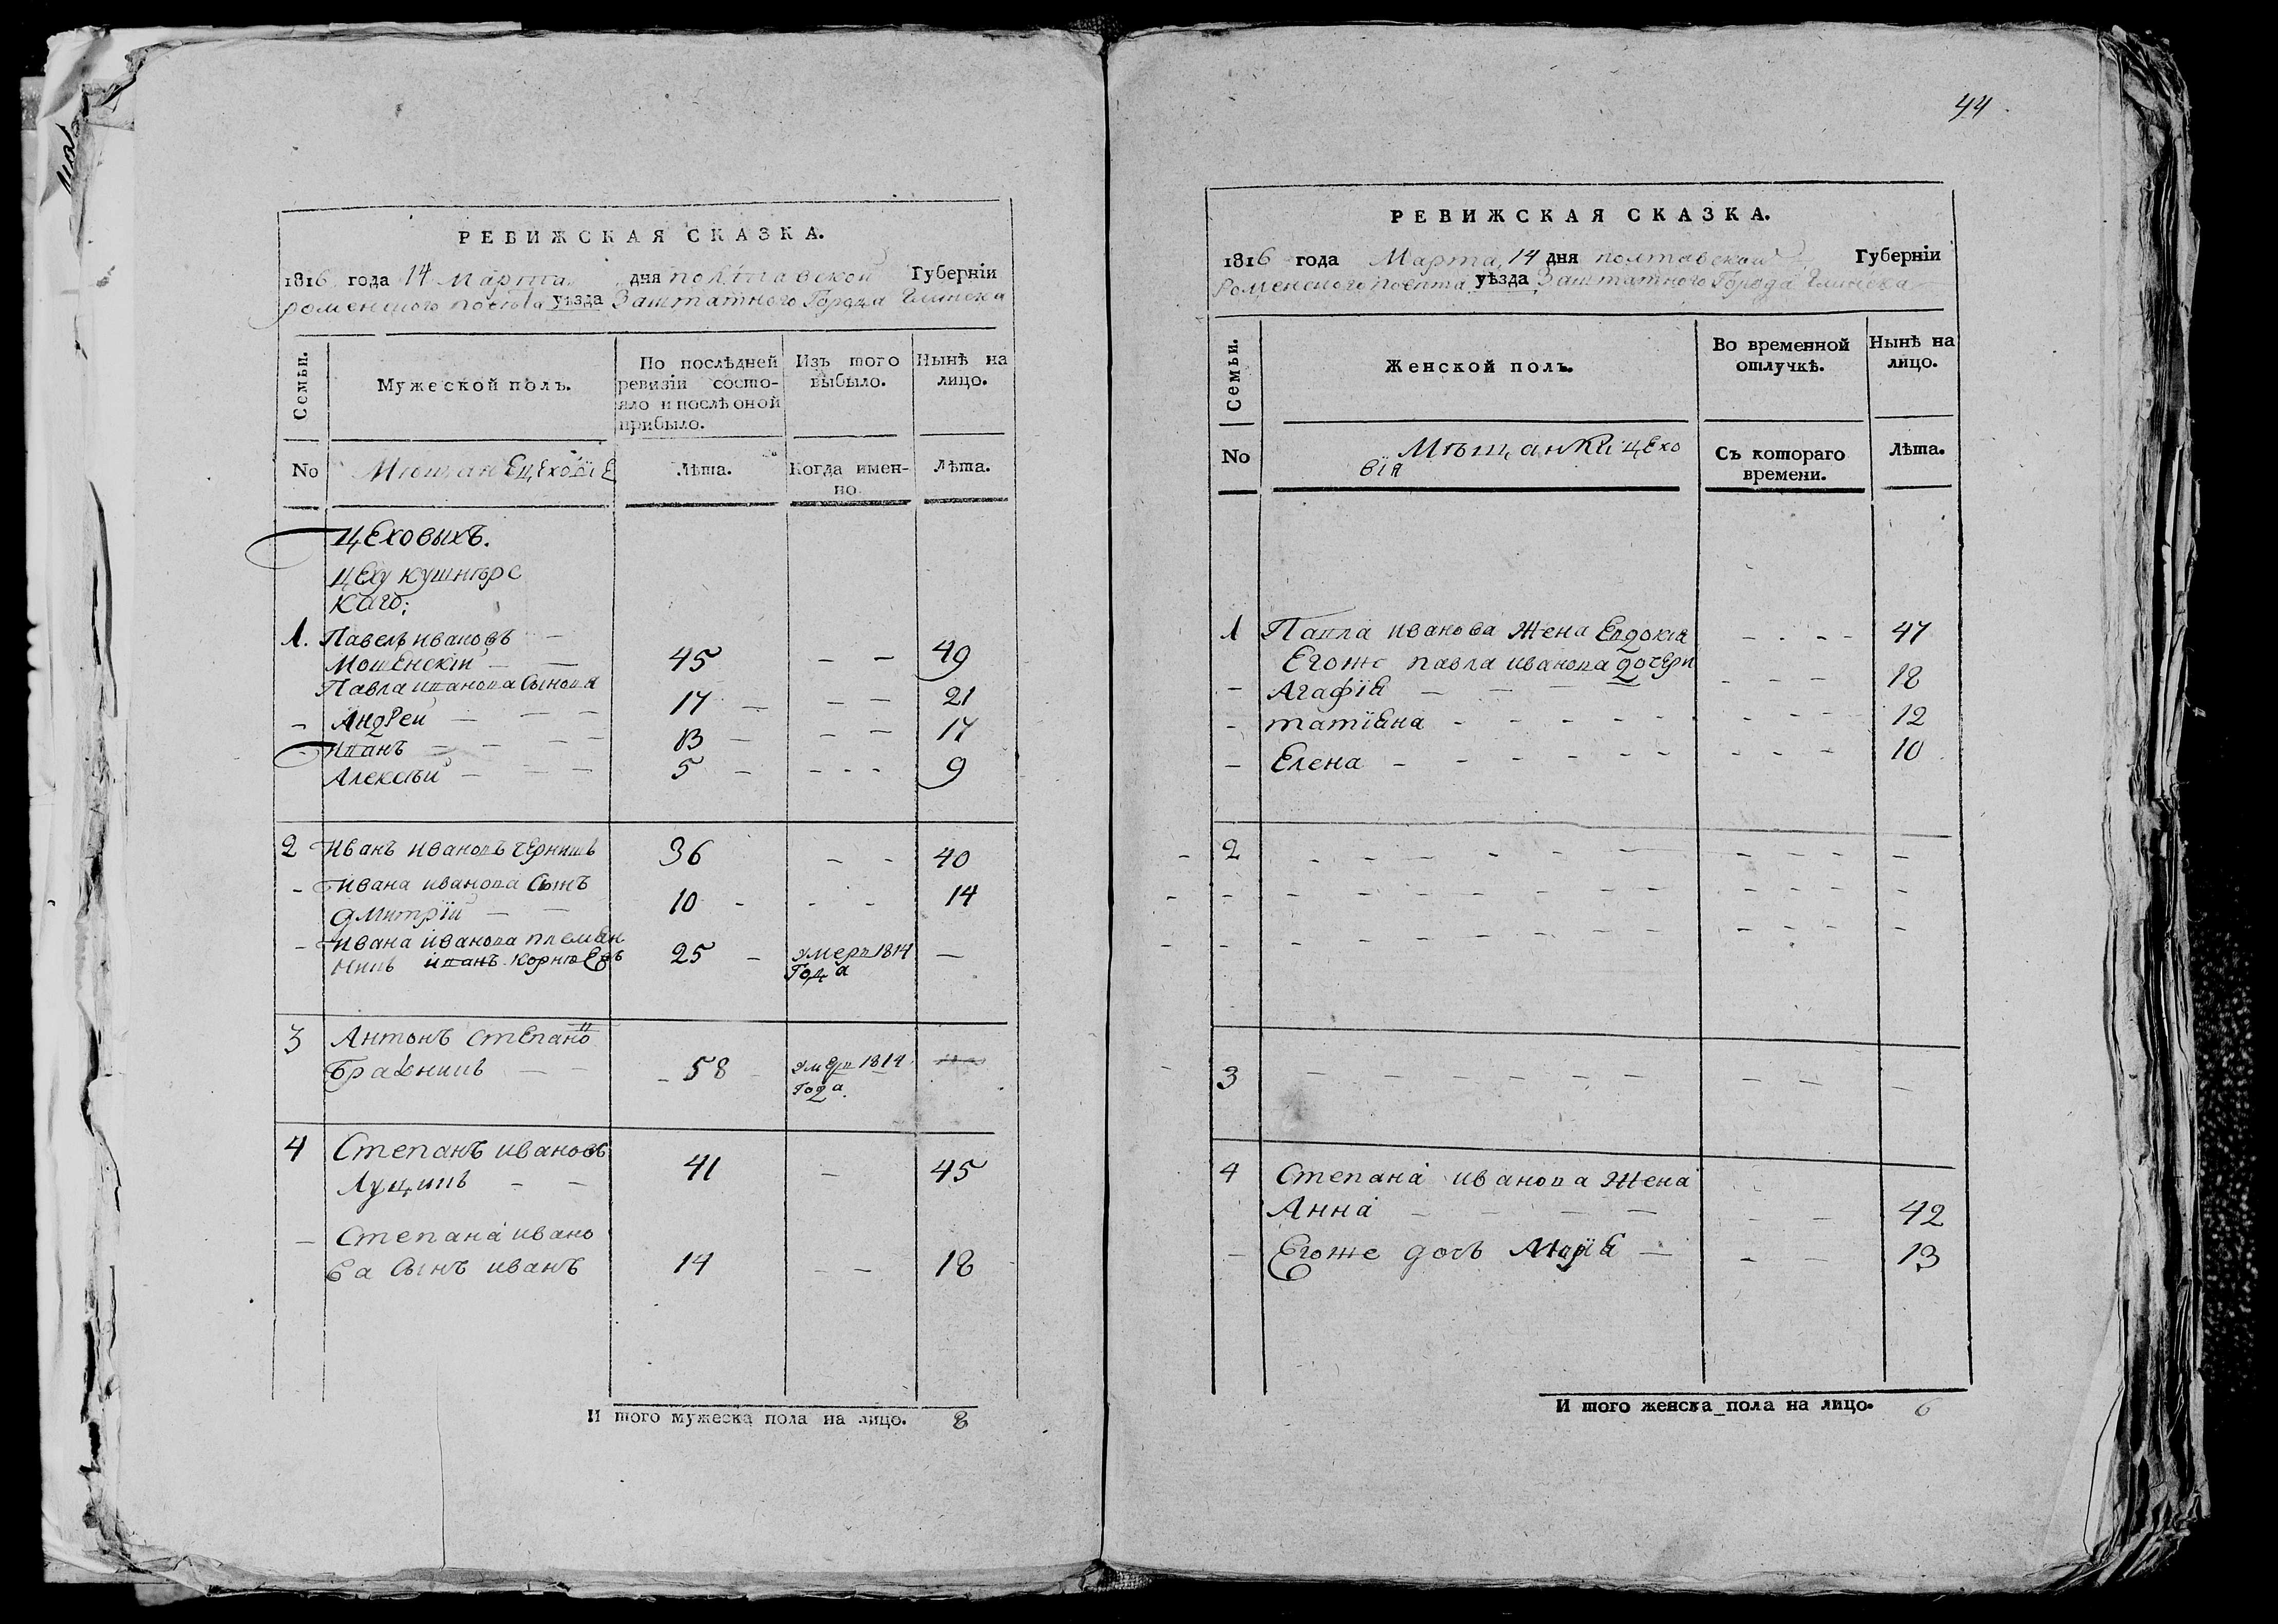 44
РЕВИЖСКАЯ СКАЗКА.
1816 года 14 Марта дня полтавской Губернiи
роменского повѣта уѣзда Заштатного Города Глинска
Семьи.
Мужеской полъ.
По послѣдней ревизiи состо-
яло и послѣ оной
прибыло.
Изъ того
выбыло.
Нынѣ на
лицо.
No
Мѣщане цеховiе
Лѣта.
Когда имен-
но
Лѣта.
цеховыхъ.
цеху кушнѣрс
каго;
1. Павелъ ивановъ —
Мошенскiй — — 45 — — 49
Павла иванова сынова
— Андрей — — — 17 — — — 21
— иванъ — — — — 13 — — — — 17
Алексѣй — — — 5 — - - - - 9
2 иванъ ивановъ чернишъ 36 - - 40
- ивана иванова сынъ
дмитрiй — — 10 - - - - 14
- ивана иванова племѣн
никъ иванъ корнѣевъ 25 — умерв 1814 —
Года
3 Антонъ степано
Бражникъ — — - 58 умерв 1814
Года.
4 Степанъ ивановъ
Лущикъ — — 41 — 45
— Степана ивано
ва сынъ иванъ 14 — — 18
И того мужеска пола на лицо. 8
РЕВИЖСКАЯ СКАЗКА.
1816 года Марта 14 дня полтавской Губернiи
Роменского повѣта уѣзда Заштатного Города Глинска
Семьи.
Женской полъ.
Во временной
отлучкѣ.
Нынѣ на
лицо.
No
Мѣщанки цехо
вiя
Съ котораго
времени.
Лѣта.
1 Павла иванова жена Евдокiя - . - - 47
Егоже павла иванова дочери
— Агафiя — — — — - - - 18
- татiяна - - - - - - - - - 12
— Елена - - - - - - - - - - 10
2 - - - - - - - - - - -
3 — — — — — — — — —
4 Степана иванова жена
Анна — — — — — — 42
— Егоже дочь Марiя — - — 13
И того женска пола на лицо. 6